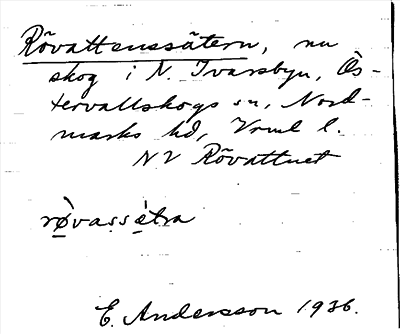 Rövattenssätern, nu
skog i N. Ivarsbyn, Ös-
tervallskogs sn, Nord-
marks hd, Vrml l.
NV Rövattnet
rø̀vassètra
E. Andersson 1936.